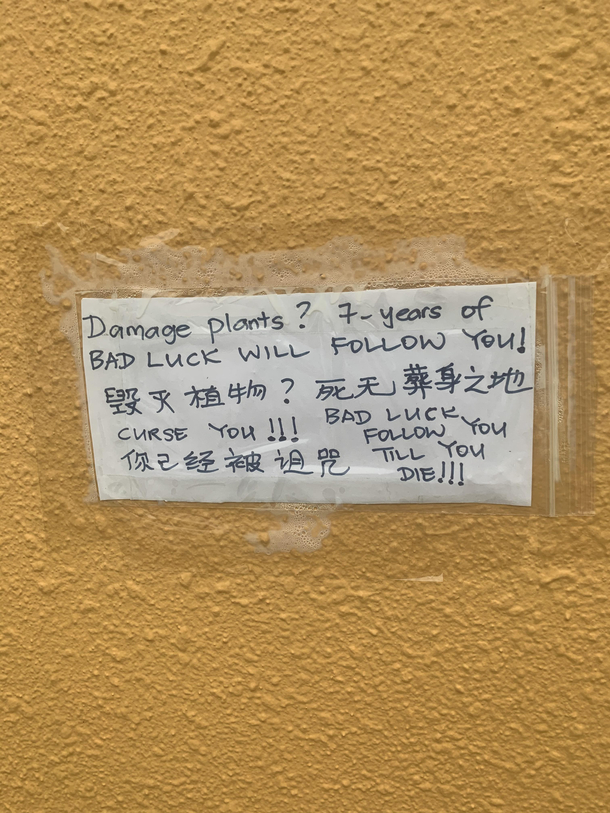 Damage plants? 7-years of
BAD LUCK WILL FOLLOW YOU!
毁灭植物? 死无葬身之地
BAD LUCK
CURSE YOU!!! FOLLOW YOU
你己经被诅咒 TILL YOU
DIE!!!